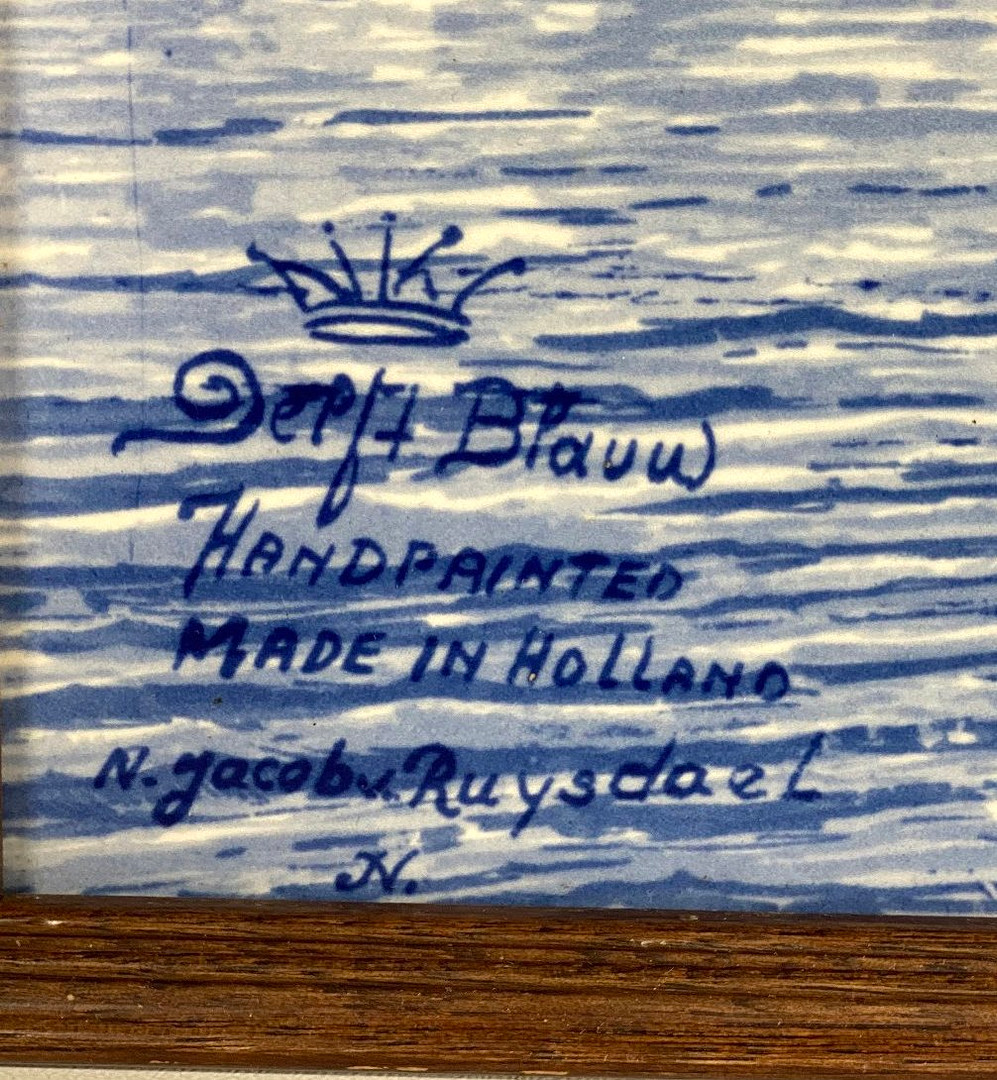 Delft Blauw
HANDPAINTED
MADE IN HOLLAND
N. Jacob v. Ruysdael
N.